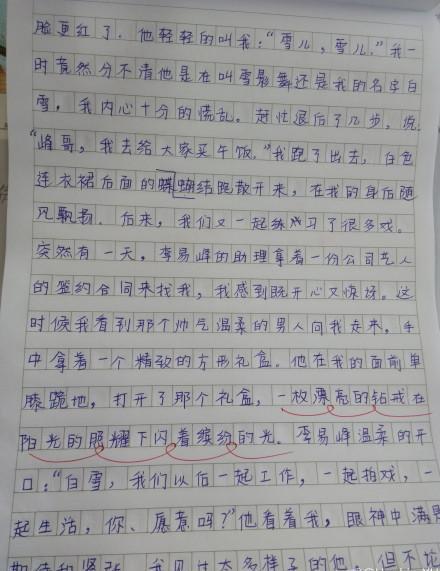 脸更红了。他轻轻的叫我："雪儿，雪儿。"我一
时竟然分不清他是在叫雪影舞还是我的名字白
雪。我内心十分的慌乱。赶忙退后了几步，说
"峰哥，我去给大家买午饭。"我跑了出去，白色
连衣裙后面的蝴蝶结跑散开来，在我的身后随
风飘扬。后来，我们又一起练习了很多戏。
突然有一天，李易峰的助理拿着一份公司艺人
的签约合同来找我，我感到既开心又惊讶。这
时候我看到那个帅气温柔的男人向我走来，手
中拿着一个精致的方形礼盒。他在我的面前单
膝跪地，打开了那个礼盒，一枚漂亮的钻戒在
阳光的照耀下闪着缤纷的光。李易峰温柔的开
口："白雪，我们以后一起工作，一起拍戏，一
起生活，你、愿意吗？"他看着我，眼神中满是
我见过太多样子的他，但不